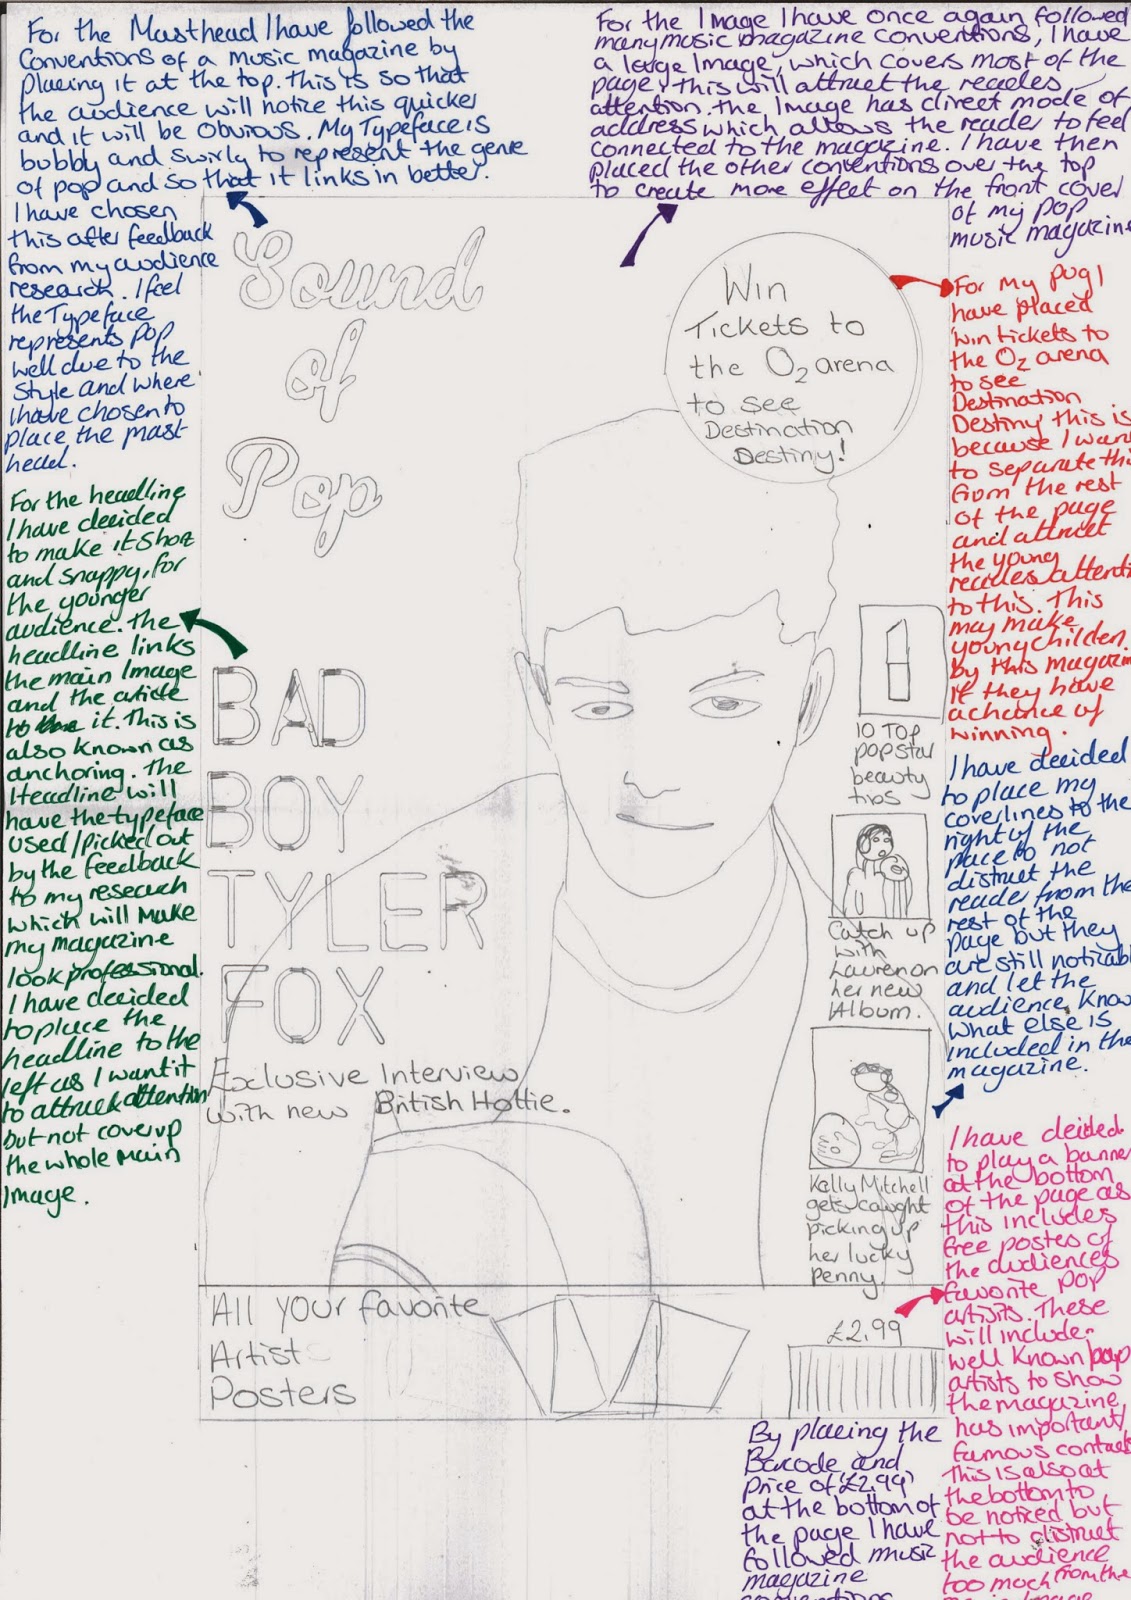 For the Masthead I have followed the
Conventions of a music magazine by
placing it at the top. This is so that
the audience will notice this quicker
and it will be Obvious. My Typeface is
bubbly and swirly to represent the genre
of pop and so that it links in better.
I have chosen
this after feedback
from my audience
research. I feel
the Typeface
represents pop
well due to the
Style and where
I have chosen to
place the mast
head.
For the Image I have once again followed
many music magazine conventions, I have
a large Image, which covers most of the
page, this will attract the readers
attention. the Image has direct mode of
address which allows the reader to feel
connected to the magazine. I have then
placed the other conventions over the top
to create more effect on the front cover
of my pop
music magazine
Sound
of
Pop
Win
Tickets to
the O2 arena
to see
Destination
Destiny!
For my pug I
have placed
'win tickets to
the O2 arena
to see
Destination
Destiny' this is
because I want
to separate this
from the rest
of the page
and attract
the young
readers attenti
to this. This
may make
young childen
by this magazin
if they have
a chance of
winning.
For the headline
I have decided
to make it short
and snappy, for
the younger
audience. The
headline links
the main Image
and the article
to it. This is
also known as
anchoring. The
Headline will
have the typeface
used/picked out
by the feedback
to my research
which will make
my magazine
look professional.
I have decided
to place the
headline to the
left as I want it
to attract attention
but not cover up
the whole main
Image.
BAD
BOY
TYLER
FOX
Exclusive Interview
with new British Hottie.
1
10 Top
pop star
beauty
tips
Catch up
with
Lauren on
her new
Album.
Kelly Mitchell
gets caught
picking up
her lucky
penny.
I have decided
to place my
coverlines to the
right of the
pace to not
distruct the
reader from the
rest of the
page but they
are still noticabl
and let the
audience, know
what else is
included in the
magazine.
All your favorite
Artist
Posters
£2.99
I have deided
to play a banner
at the bottom
of the page as
this includes
free postes of
the audiences
favorite pop
artisits. These
will include
well known pop
artists to show
the magazine,
has important,
famous contacts
This is also at
the bottom to
be noticed but
not to distruct
the audience
too much from the
By placing the
Barcode and
price of '£2.99'
at the bottom of
the page I have
followed music
magazine